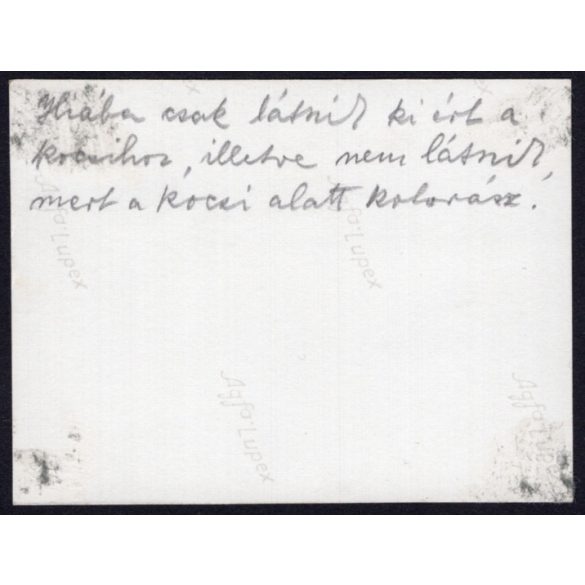 Hiába csak látni ki ért a
kocsihoz, illetve nem látni,
mert a kocsi alatt kotorász.
Agfa Lupex
Agfa Lupex
Agfa Lupex
Agfa Lupex